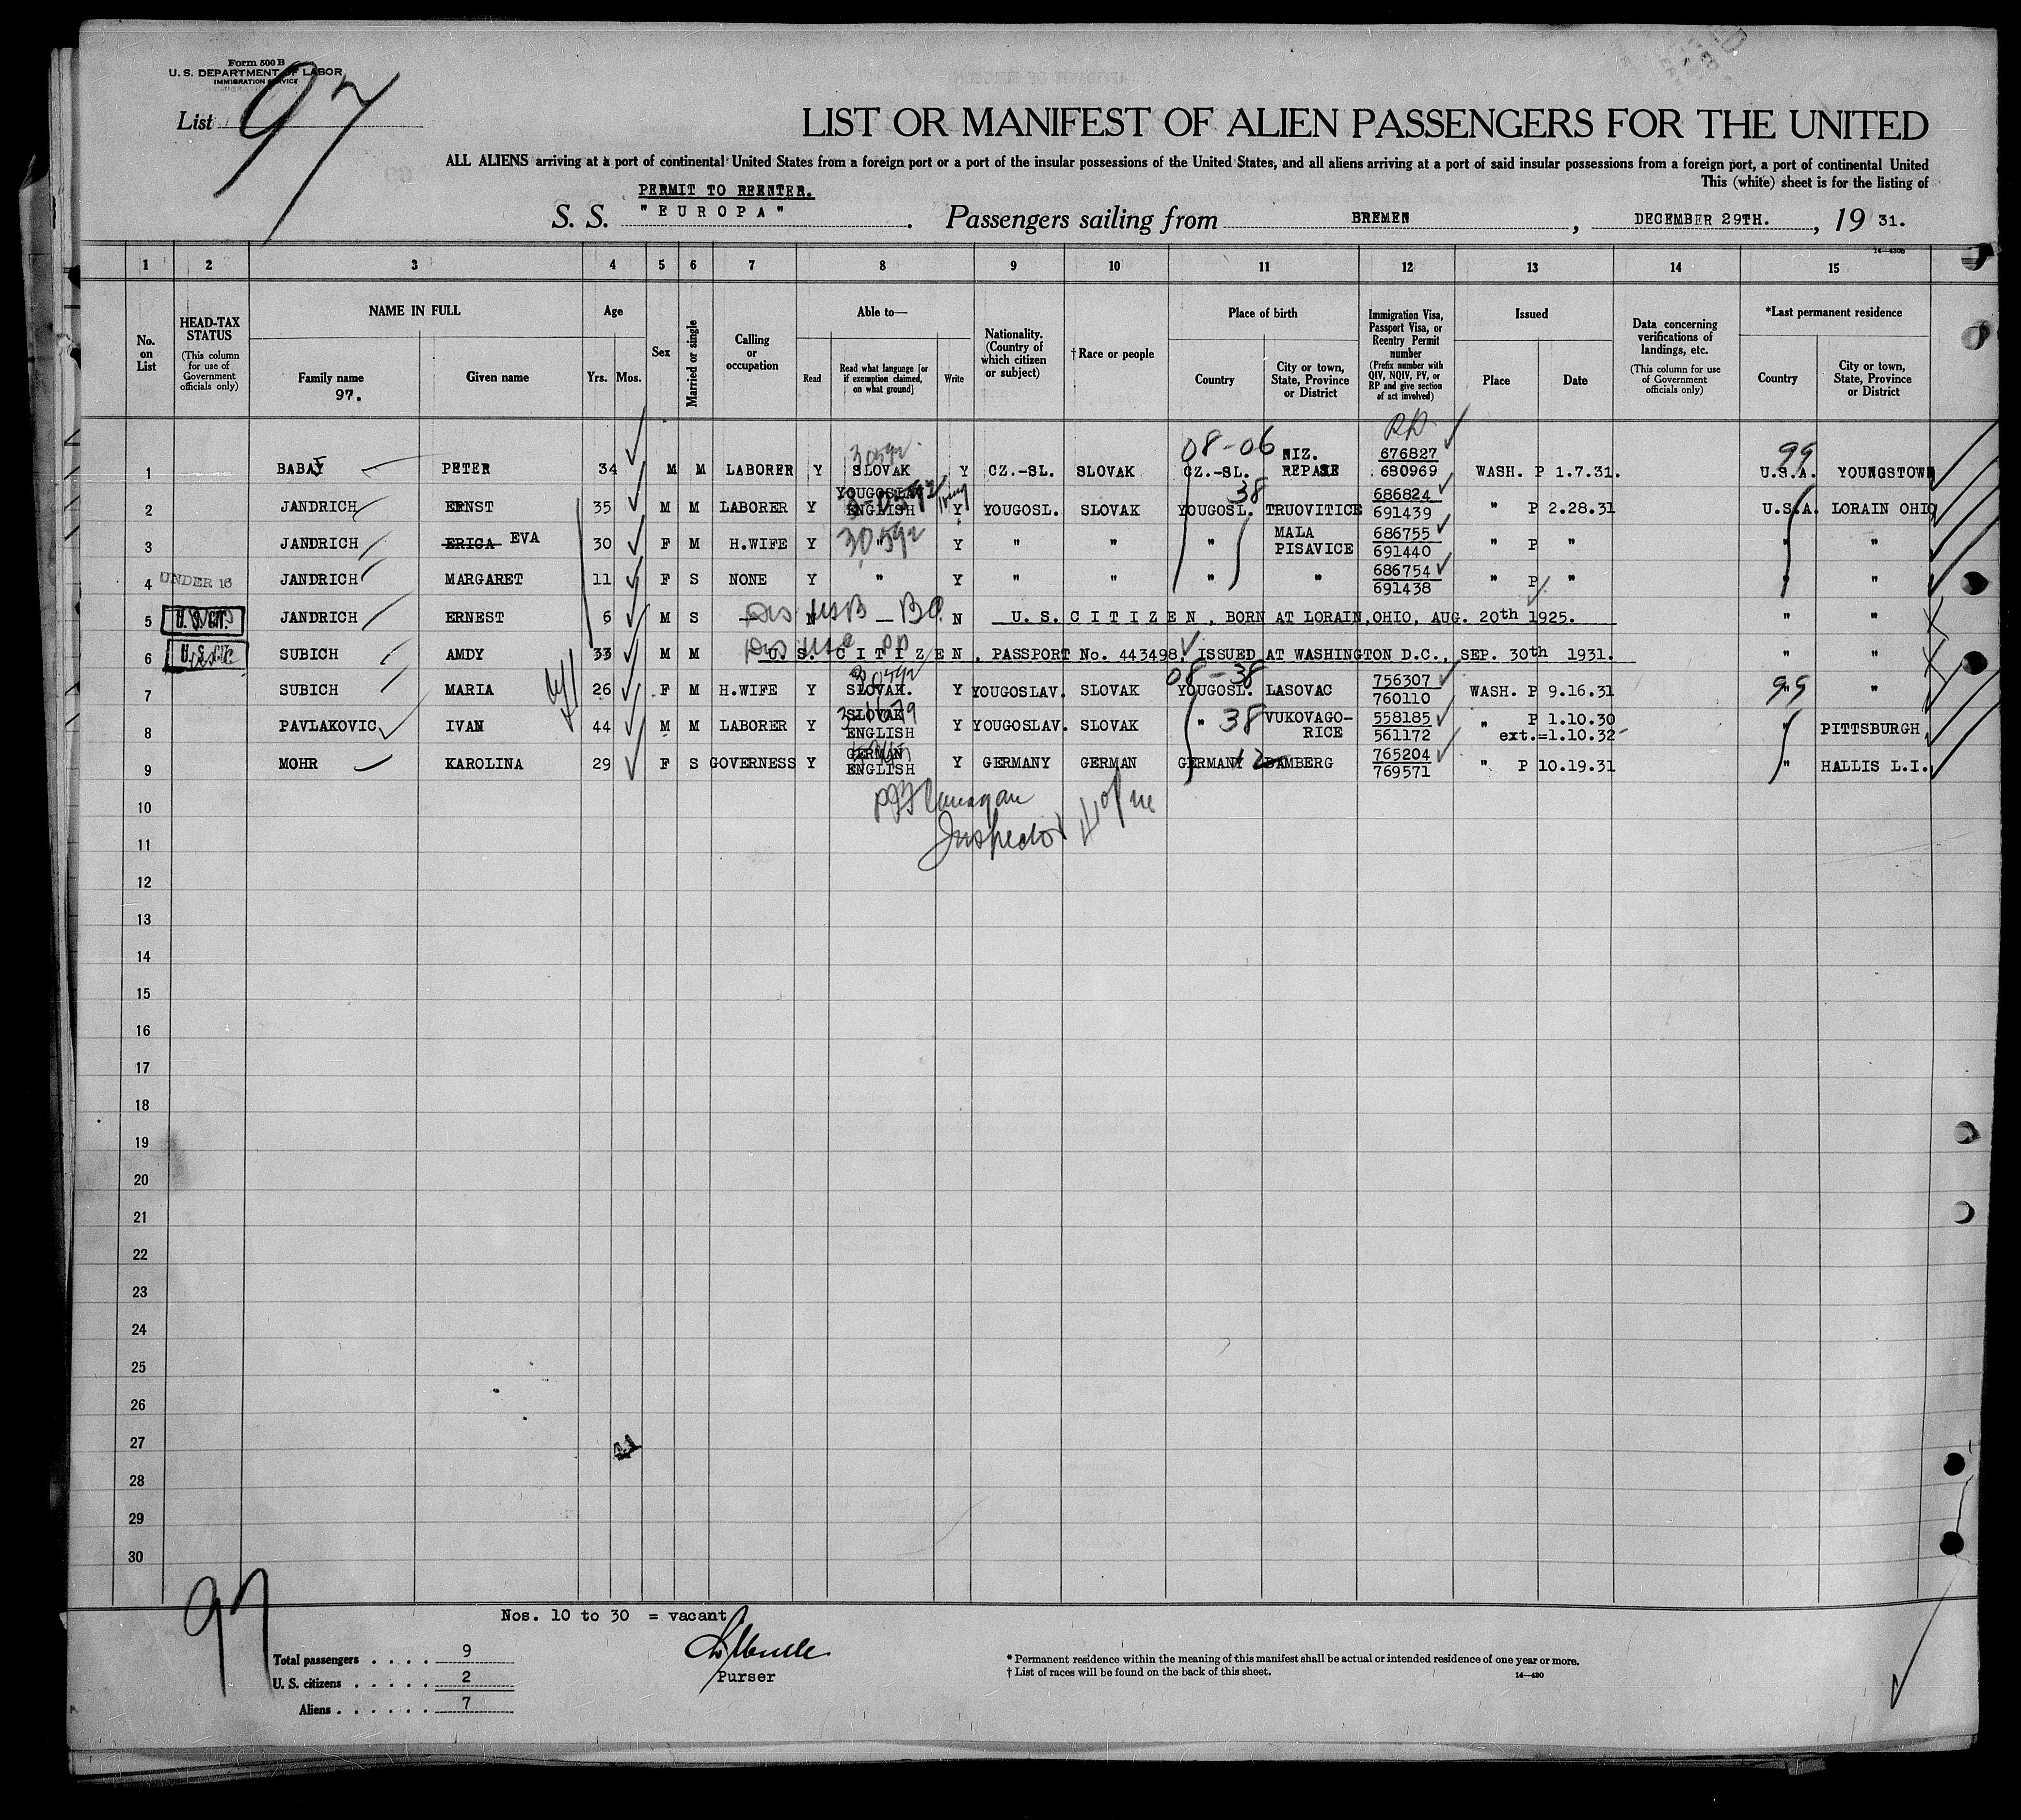 Form 500 B
U. S. DEPARTMENT OF LABOR
IMMIGRATION SERVICE
List 97
LIST OR MANIFEST OF ALIEN PASSENGERS FOR THE UNITED
ALL ALIENS arriving at a port of continental United States from a foreign port or a port of the insular possessions of the United States, and all aliens arriving at a port of said insular possessions from a foreign port, a port of continental United
This (white) sheet is for the listing of
PERMIT TO REENTER.
S. S. "EUROPA". Passengers sailing from BREMEN, DECEMBER 29TH., 19 31.
14-430B
1 2 3 4 5 6 7 8 9 10 11 12 13 14 15
No. on List
HEAD-TAX STATUS (This column for use of Government officials only)
NAME IN FULL
Family name 97.
Given name
Age
Yrs. Mos.
Sex
Married or single
Calling or occupation
Able to—
Read
Read what language [or if exemption claimed, on what ground]
Write
Nationality. (Country of which citizen or subject)
†Race or people
Place of birth
Country
City or town, State, Province or District
Immigration Visa, Passport Visa, or Reentry Permit number (Prefix number with QIV, NQIV, PV, or RP and give section of act involved)
Issued
Place
Date
Data concerning verifications of landings, etc. (This column for use of Government officials only)
*Last permanent residence
Country
City or town, State, Province or District
RP
1 BABAJ PETER 34 M M LABORER Y SLOVAK Y CZ.-SL. SLOVAK 08-06 CZ.-SL. NIZ. REPASE 676827 680969 WASH. P 1.7.31. 99 U.S.A. YOUNGSTOWN
2 JANDRICH ERNST 35 M M LABORER Y YOUGOSLAV ENGLISH Y YOUGOSL. SLOVAK 38 YOUGOSL. TRUOVITICE 686824 691439 " P 2.28.31 U.S.A. LORAIN OHIO
3 JANDRICH ERICA EVA 30 F M H.WIFE Y 30592 Y " " " MALA PISAVICE 686755 691440 " P " " "
4 UNDER 16 JANDRICH MARGARET 11 F S NONE Y " Y " " " " 686754 691438 " P " " "
5 JANDRICH ERNEST 6 M S N N U.S. CITIZEN, BORN AT LORAIN, OHIO, AUG. 20th 1925. " "
6 SUBICH AMDY 33 M M U.S. CITIZEN, PASSPORT No. 443498, ISSUED AT WASHINGTON D.C., SEP. 30th 1931. " "
7 SUBICH MARIA 26 F M H.WIFE Y SLOVAK. Y YOUGOSLAV. SLOVAK 08-38 YOUGOSL. LASOVAC 756307 760110 WASH. P 9.16.31 99 " "
8 PAVLAKOVIC IVAN 44 M M LABORER Y SLOVAK ENGLISH Y YOUGOSLAV. SLOVAK " 38 VUKOVAGO-RICE 558185 561172 " P 1.10.30 ext.=1.10.32 " PITTSBURGH
9 MOHR KAROLINA 29 F S GOVERNESS Y GERMAN ENGLISH Y GERMANY GERMAN GERMANY 12 BAMBERG 765204 769571 " P 10.19.31 " HALLIS L.I.
10
Inspector
11
12
13
14
15
16
17
18
19
20
21
22
23
24
25
26
27
28
29
30
97
Nos. 10 to 30 = vacant
Total passengers . . . . 9
U. S. citizens . . . . . 2
Aliens . . . . . . 7
Purser
* Permanent residence within the meaning of this manifest shall be actual or intended residence of one year or more.
† List of races will be found on the back of this sheet.
14—430